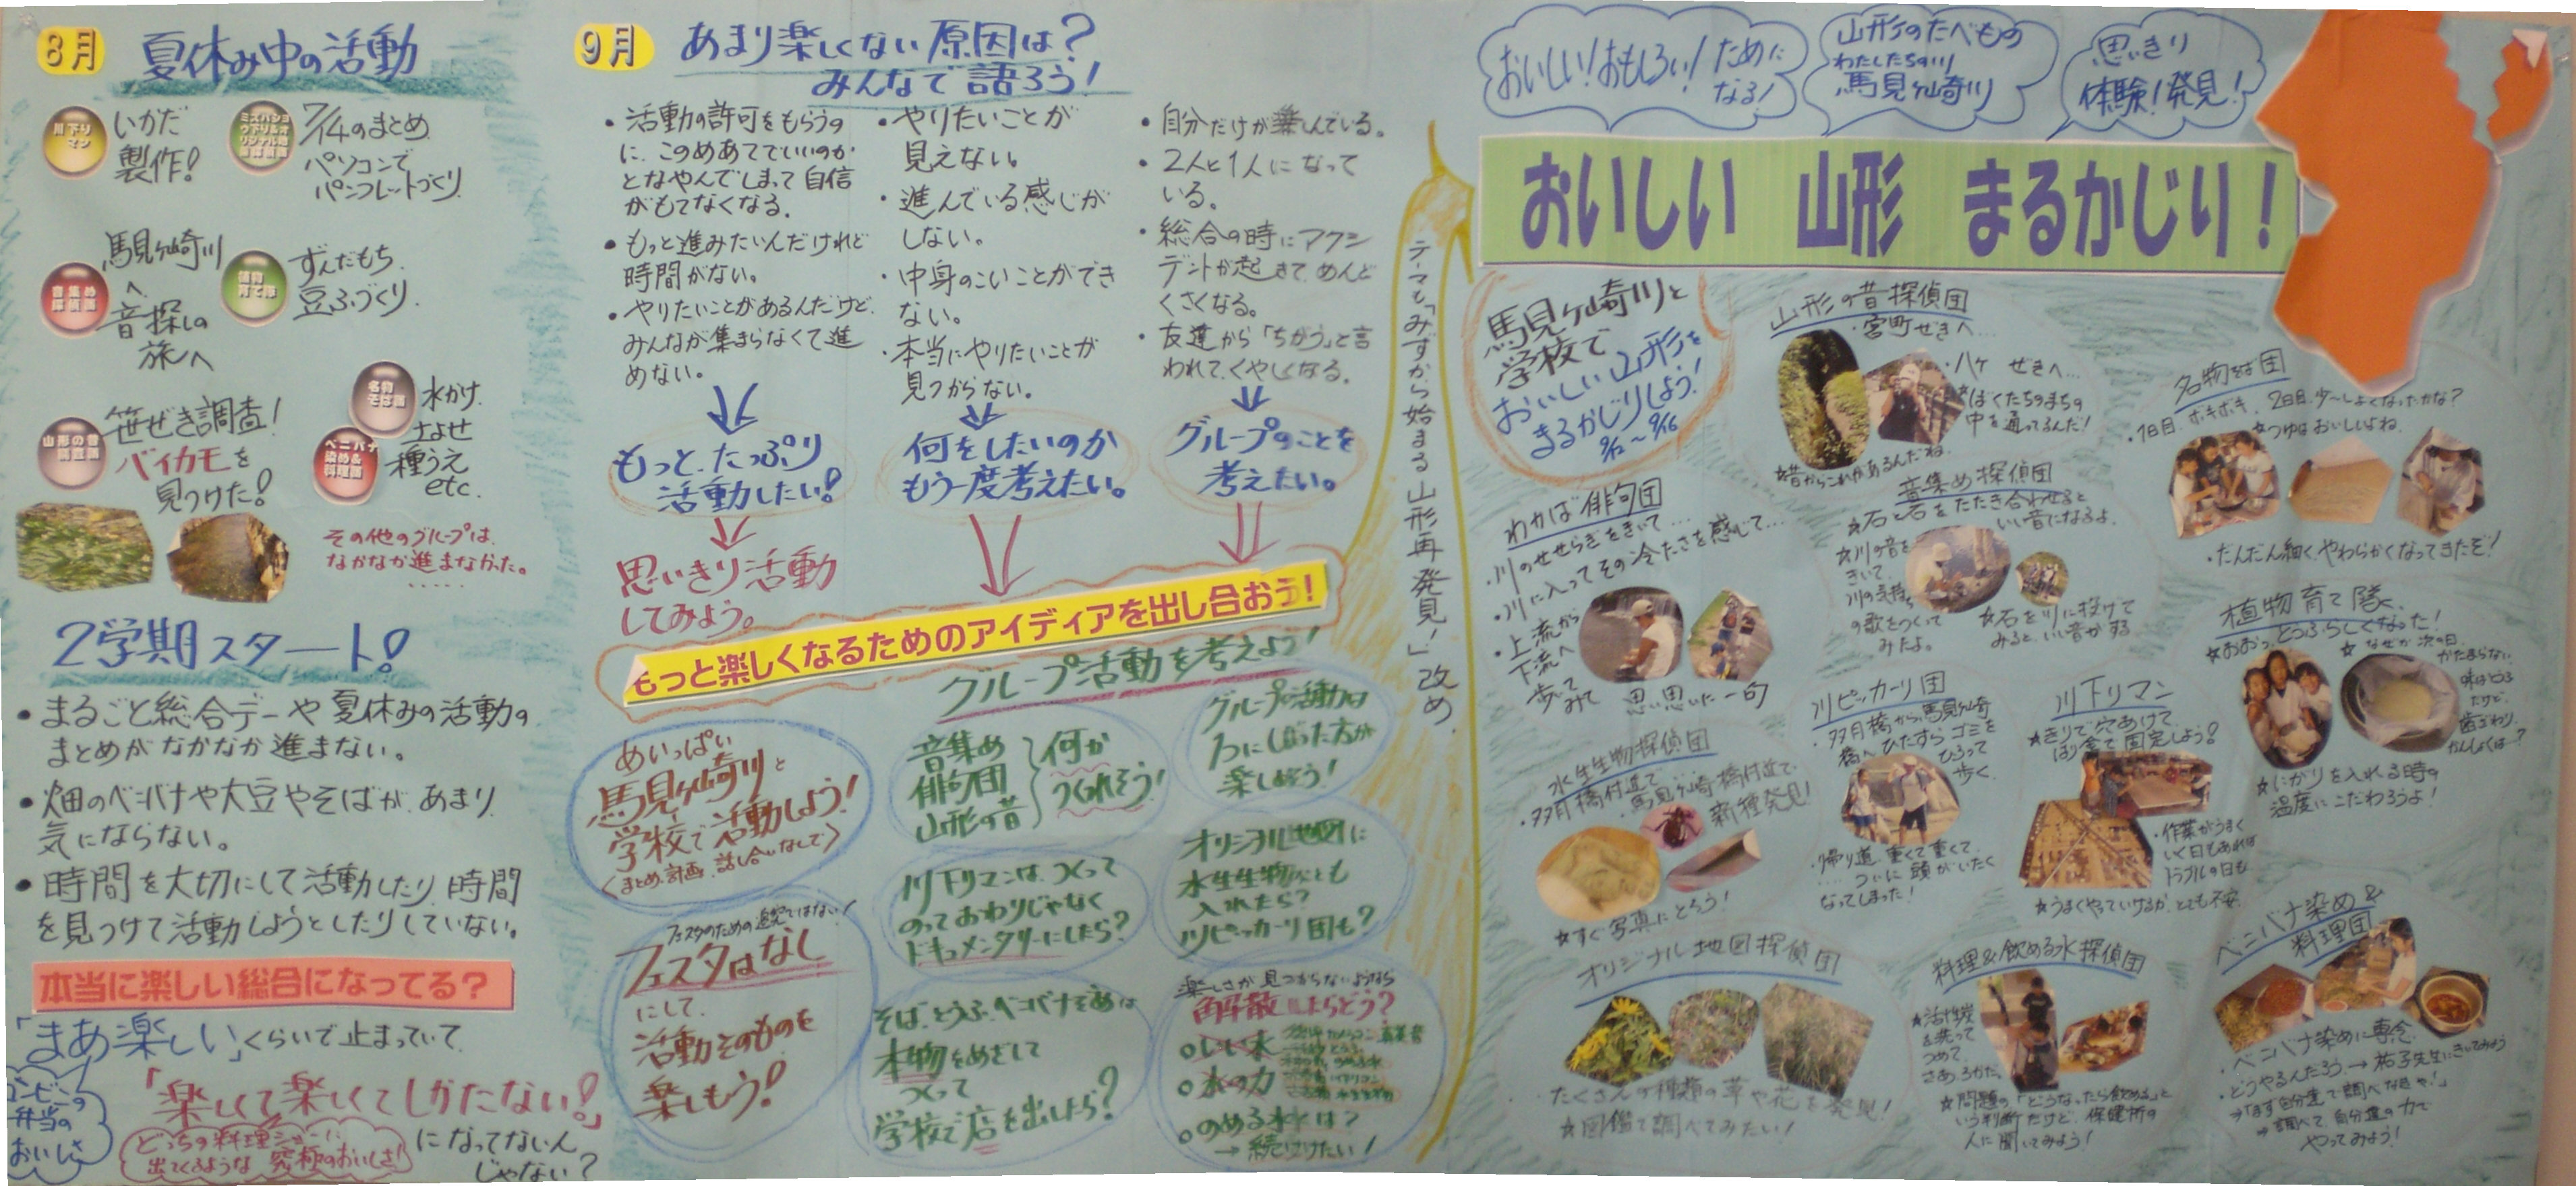 8月
夏休み中の活動
川下り
マン
いかだ
製作!
7/14のまとめ
パソコンで
パンフレットづくり
音集め
探偵団
馬見ヶ崎川
へ
音探しの
旅へ
植物
育て隊
ずんだもち
豆ふづくり
山形の昔
調査団
笹ぜき調査!
バイカモを
見つけた!
名物
そば団
ベニバナ
染め&
料理団
水かけ
土よせ
種うえ
etc.
その他のグループは、
なかなか進まなかった。
・・・・・
2学期スタート!
・まるごと総合デーや夏休みの活動の
まとめがなかなか進まない。
・畑のベニバナや大豆やそばが、あまり
気にならない。
・時間を大切にして活動したり、時間
を見つけて活動しようとしたりしていない。
本当に楽しい総合になってる?
「まあ楽しい」くらいで止まっていて
「楽しくて楽しくてしかたない!」
になってないん
じゃない?
コンビニの
弁当の
おいしさ
どっちの料理ショーに
出てくるような 究極のおいしさ!
9月
あまり楽しくない原因は?
みんなで語ろう!
・活動の許可をもらうの
に、このめあてでいいのか
となやんでしまって自信
がもてなくなる。
・もっと進みたいんだけれど
時間がない。
・やりたいことがあるんだけど、
みんなが集まらなくて進
めない。
もっと、たっぷり
活動したい!
思いきり活動
してみよう。
・やりたいことが
見えない。
・進んでいる感じが
しない。
・中身のこいことができ
ない。
・本当にやりたいことが
見つからない。
何をしたいのか
もう一度考えたい。
・自分だけが楽しんでいる。
・2人と1人になって
いる。
・総合の時にアクシ
デントが起きて、めんど
くさくなる。
・友達から「ちがう」と言
われて、くやしくなる。
グループのことを
考えたい。
もっと楽しくなるためのアイディアを出し合おう!
グループ活動を考えよう!
めいっぱい
馬見ヶ崎川と
学校で活動しよう!
〈まとめ、計画、話し合いなしで〉
フェスタのための追究ではない!
フェスタはなし
にして、
活動そのものを
楽しもう!
音集め
俳句団
山形の昔
何か
つくれそう!
川下りマンは、つくって
のっておわりじゃなく
ドキュメンタリーにしたら?
そば、とうふ、ベニバナぞめは
本物をめざして
つくって
学校で店を出したら?
グループの活動は
1つにしぼった方が
楽しめそう!
オリジナル地図に
水生生物なども
入れたら?
川ピッカーリ団も?
楽しさが見つからないようなら
解散したらどう?
○いい水
○水の力
○のめる水は?
→続けたい!
テーマも「みずから始まる山形再発見!」改め
おいしい!おもしろい!ために
なる!
山形のたべもの
わたしたちの川
馬見ヶ崎川
思いきり
体験!発見!
おいしい 山形 まるかじり!
馬見ヶ崎川と
学校で
おいしい山形を
まるかじりしよう!
9/12〜9/16
山形の昔探偵団
・宮町ぜきへ…
・八ヶぜきへ…
☆ぼくたちのまちの
中を通ってるんだ!
☆昔からこれがあるんだね。
名物そば団
・1日目、ボキボキ、2日目、少〜しよくなったかな?
☆つゆはおいしいよね。
・だんだん細く、やわらかくなってきたぞ!
わかば俳句団
・川のせせらぎをきいて…
・川に入ってその冷たさを感じて…
・上流から
下流へ
歩いて
みて
思い思いに一句
音集め探偵団
☆石と石をたたき合わせると
いい音になるよ。
☆川の音を
きいて、
川の気持ち
の歌をつくって
みたよ。
☆石を川に投げて
みると、いい音がする
植物育て隊
☆おおっ、とうふらしくなった!
☆なぜか次の日
かたまらない
味はとうふ
だけど、
歯ざわり、
かんしょくは…?
☆にがりを入れる時の
温度にこだわろうよ!
水生生物探偵団
・双月橋付近で
・馬見ヶ崎橋付近で
新種発見!
☆すぐ写真にとろう!
川ピッカーリ団
・双月橋から馬見ヶ崎
橋へひたすらゴミを
ひろって
歩く。
・帰り道、重くて重くて
……ついに頭がいたく
なってしまった!
川下りマン
☆きりで穴あけて、
はり金で固定しよう!
・作業がうまく
いく日もあれば
トラブルの日も
☆うまくやっていけるか、とても不安。
オリジナル地図探偵団
・たくさんの種類の草や花を発見!
☆図鑑で調べてみたい!
料理&飲める水探偵団
☆活性炭
を洗って
つめて、
さあ、ろかだ。
☆問題の「どうなったら飲める」と
いう判断だけど、保健所の
人に聞いてみよう!
ベニバナ染め&
料理団
・ベニバナ染めに専念
・どうやるんだろう→祐子先生にきいてみよう
→「まず自分達で調べなきゃ!」
→調べて、自分達の力で
やってみよう!